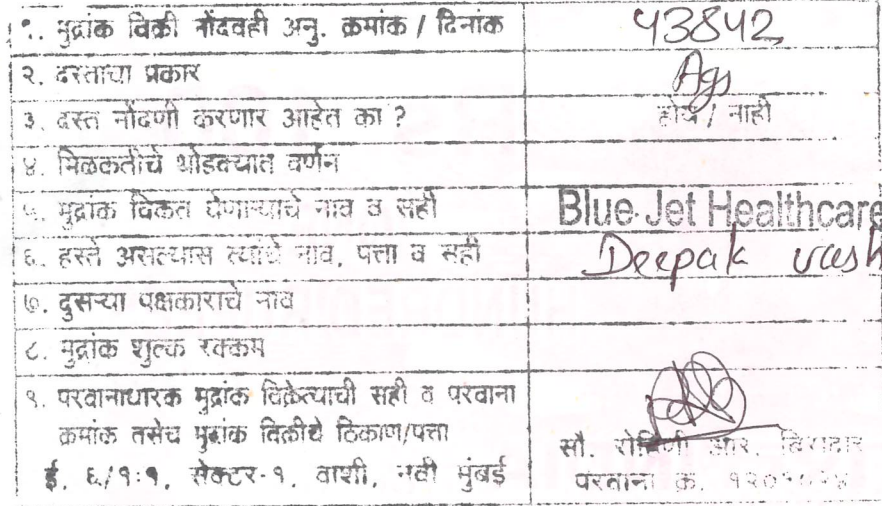 १. मुद्रांक विक्री नोंदवही अनु. क्रमांक / दिनांक 43842
२. दस्ताचा प्रकार Ags
३. दस्त नोंदणी करणार आहेत का ? होय / नाही
४. मिळकतीचे थोडक्यात वर्णन
५. मुद्रांक विकत घेणाऱ्याचे नाव व सही Blue Jet Healthcare
६. हस्ते असल्यास त्यांचे नाव, पत्ता व सही Deepak vash
७. दुसऱ्या पक्षकाराचे नाव
८. मुद्रांक शुल्क रक्कम
९. परवानाधारक मुद्रांक विक्रेत्याची सही व परवाना
क्रमांक तसेच मुद्रांक विक्रीचे ठिकाण/पत्ता
सौ. रोहिणी आर.
ई. ६/१:१, सेक्टर-१, वाशी, नवी मुंबई
परवाना क्र.